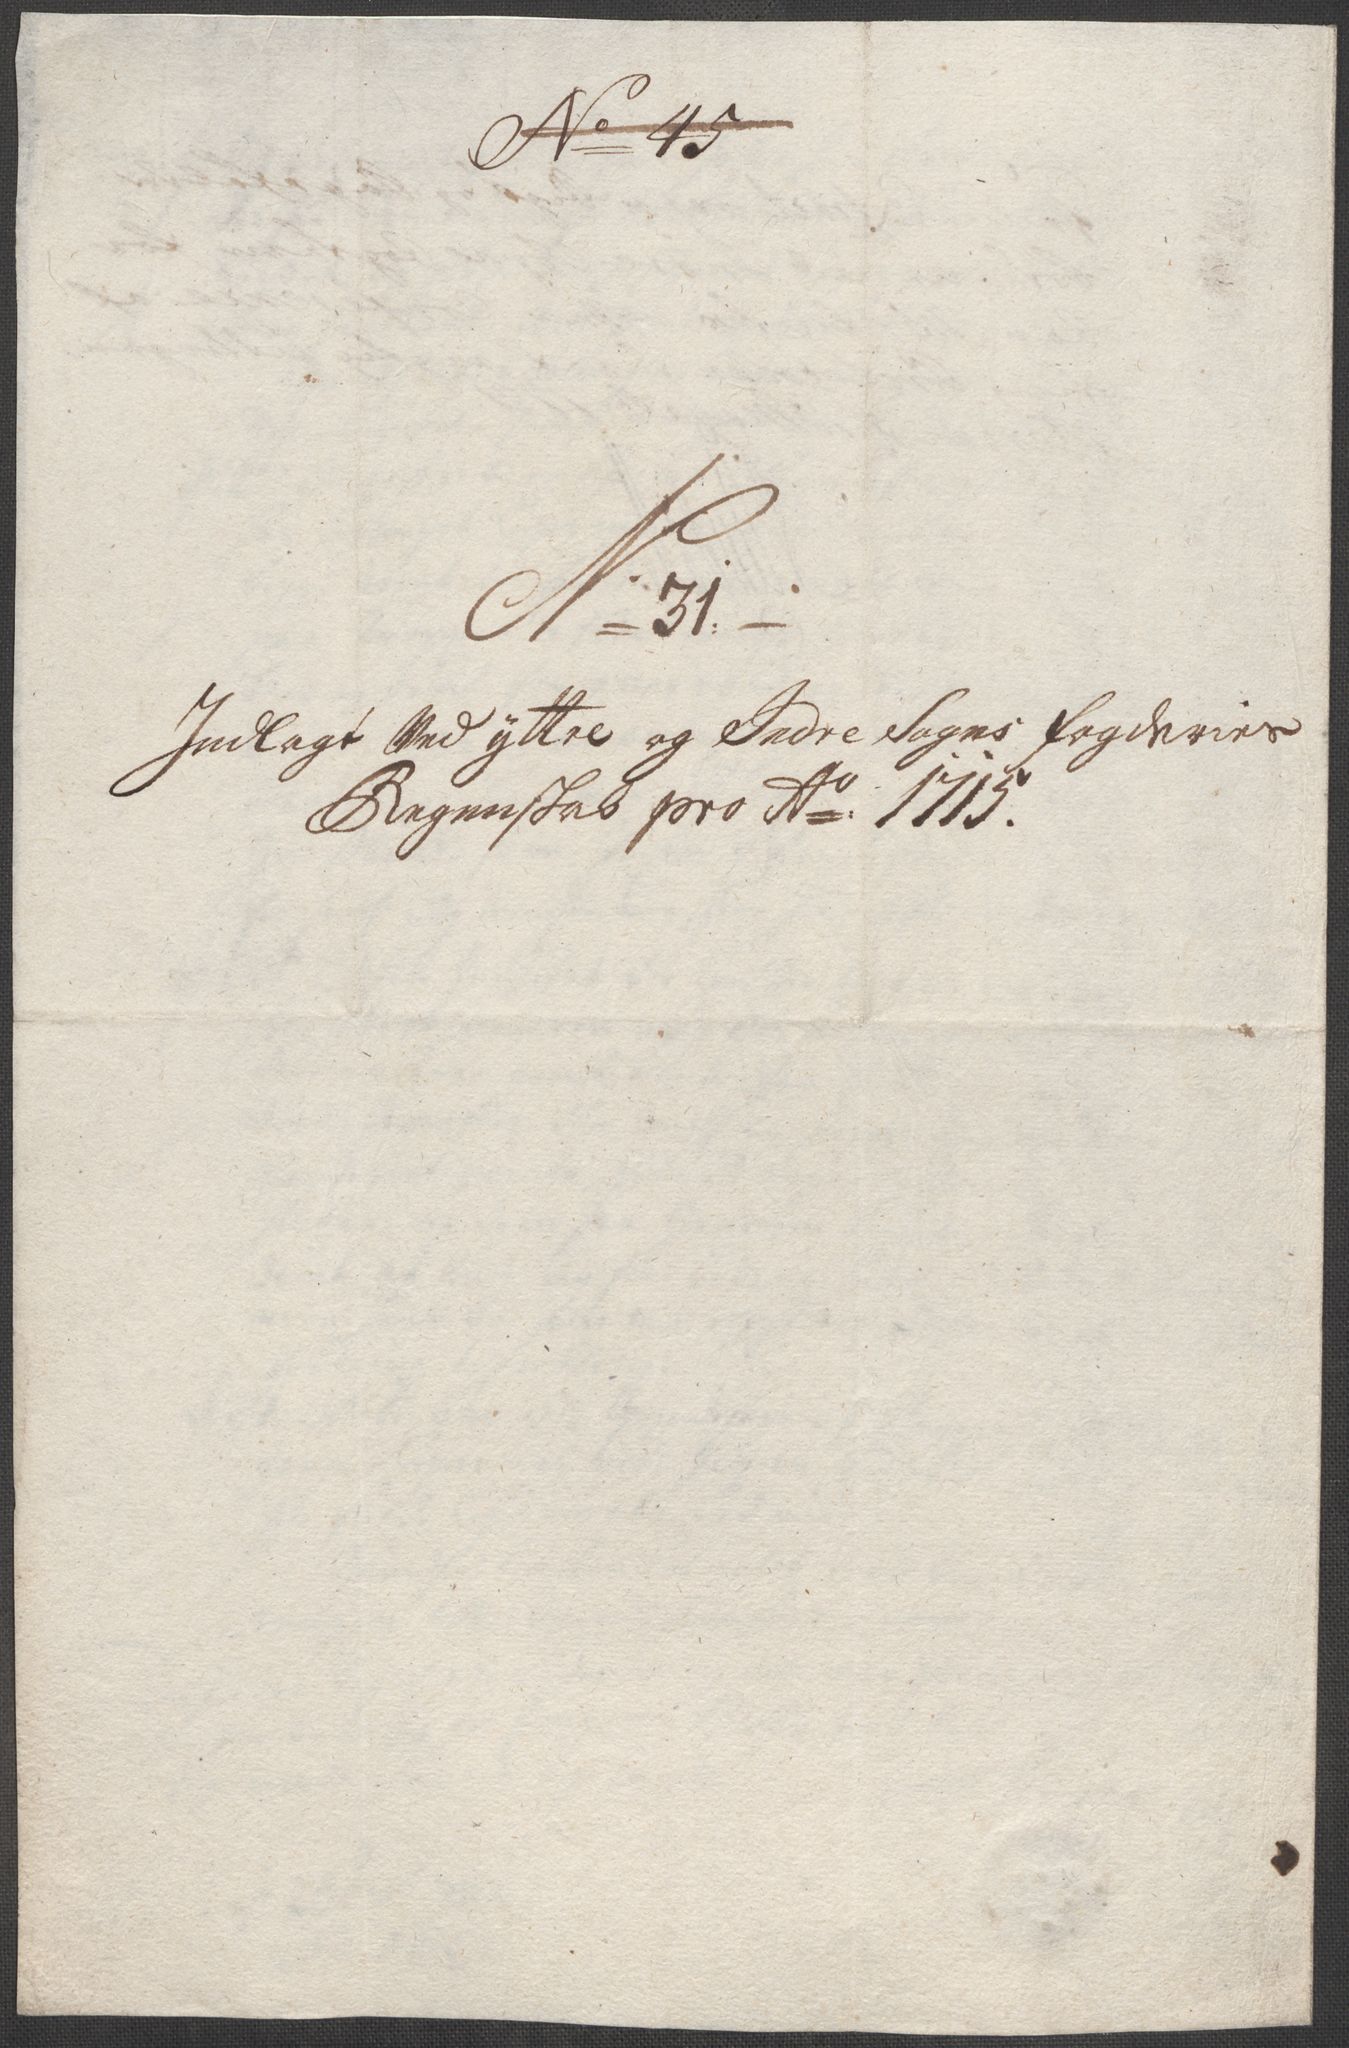 No 45
N. 31.
Indlagt Ved ÿttre og Indre Sogns fogderies
Regenskab pro Ao: 1715.